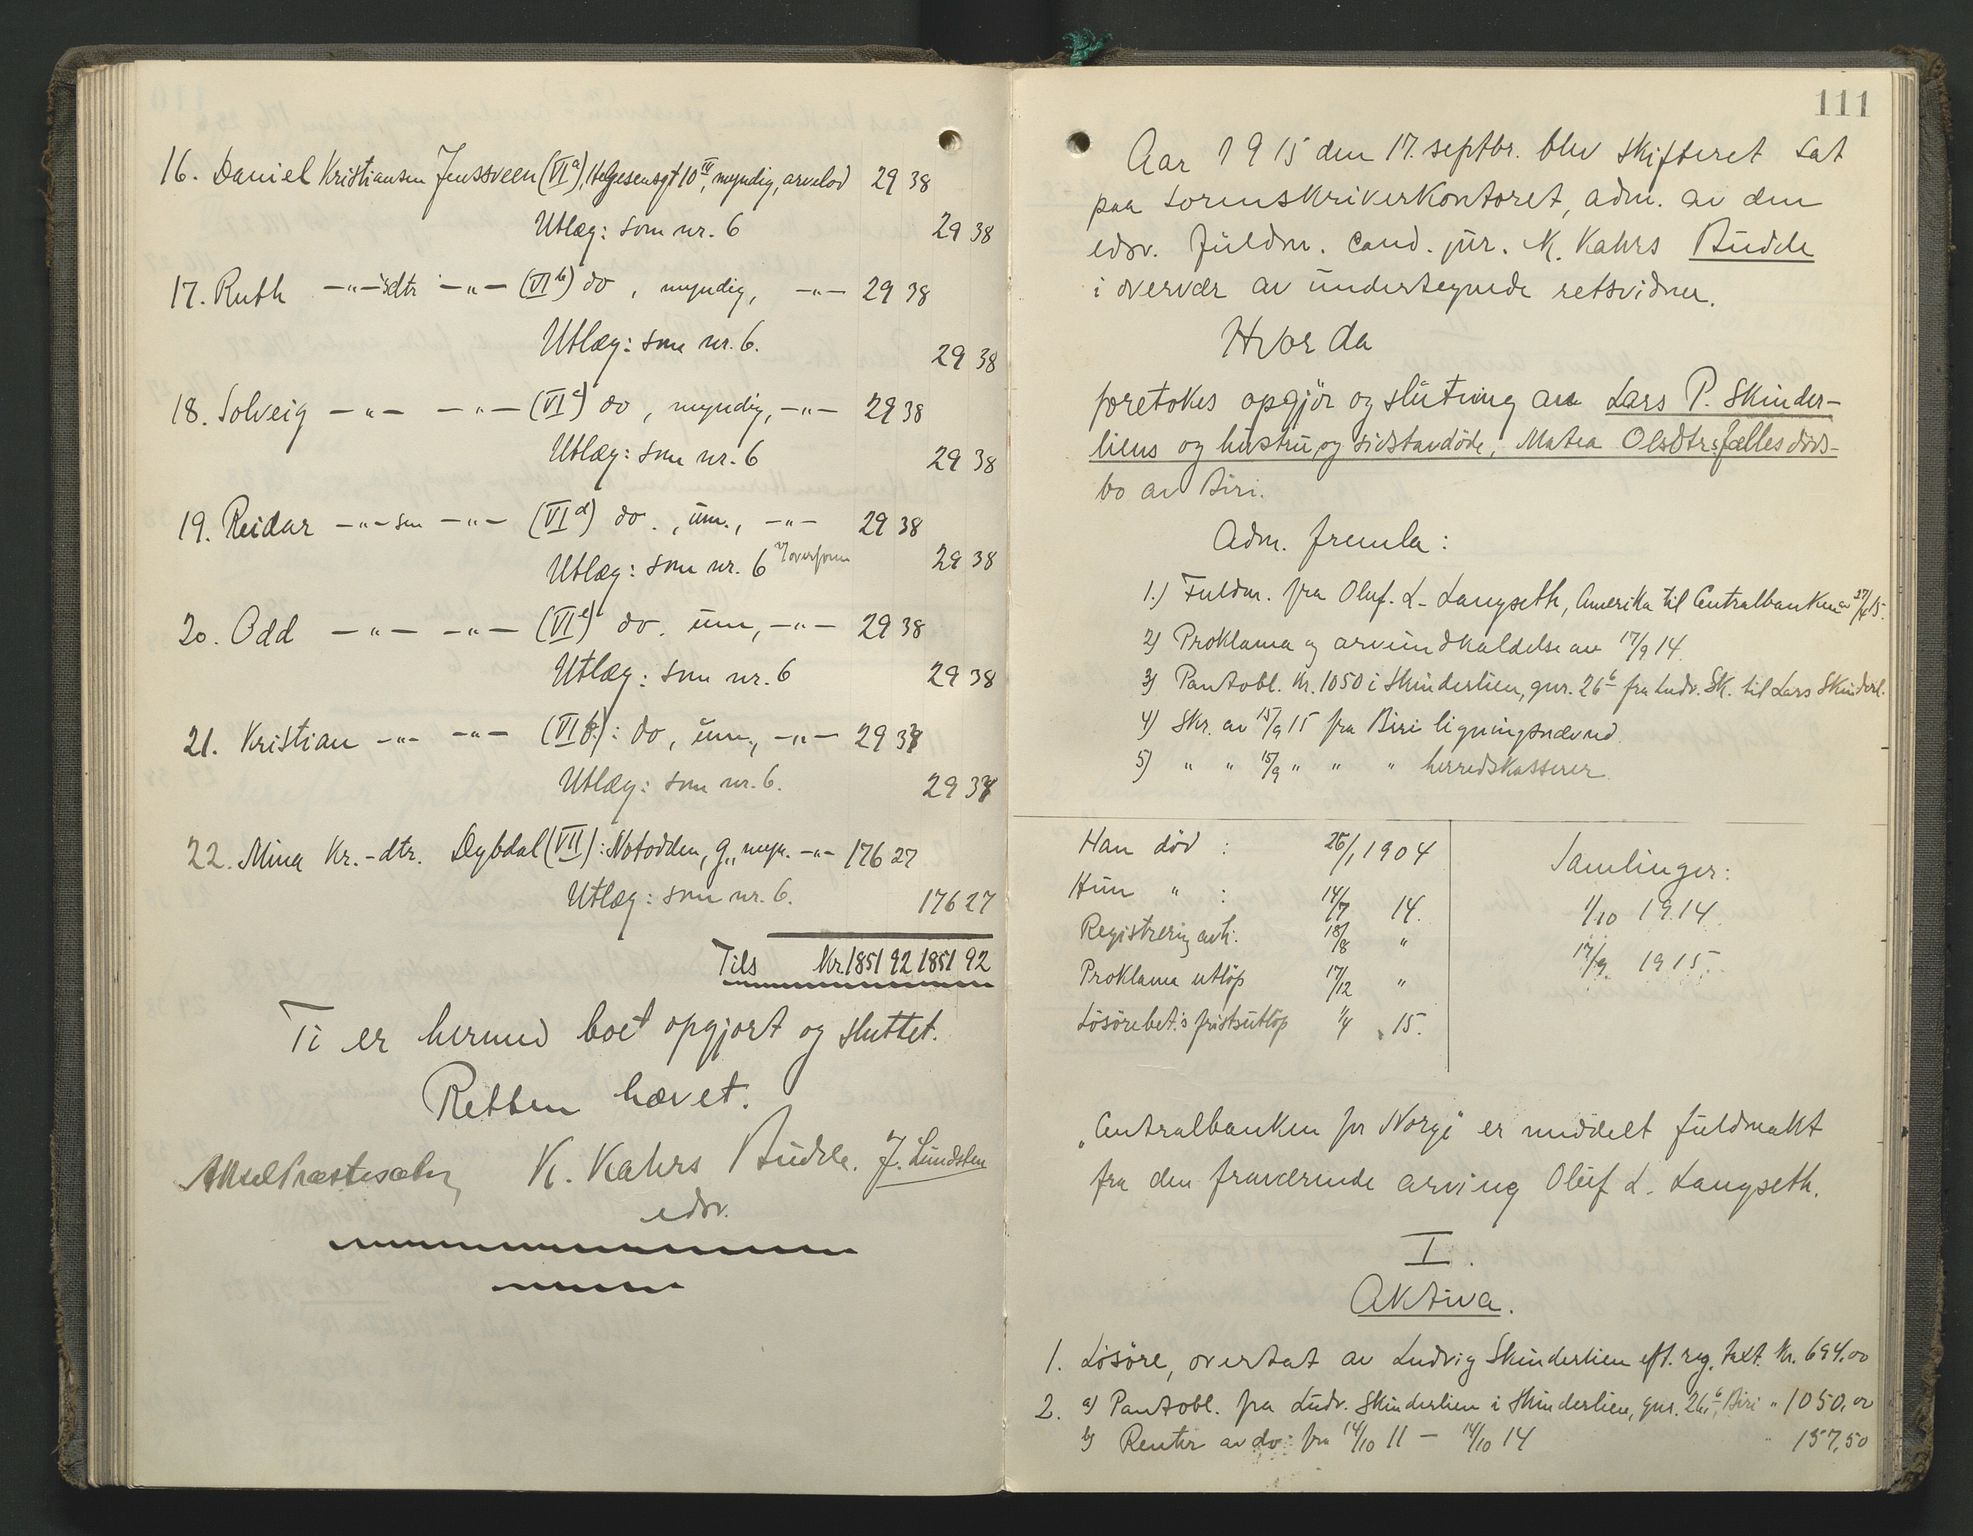 16. Daniel Kristiansen Jenssveen (VIa), Helgesensgt 10 IV, myndig, arvelod 29 38
Utlæg: som nr. 6 29 38
17. Ruth —"— sdtr —"— (VI b) do, myndig, —"— 29 38
Utlæg: som nr. 6. 29 38
18. Solveig —"— —"— (VI c) do, myndig, —"— 29 38
Utlæg: som nr. 6 29 38
19. Reidar —"— sen —"— (VI d) do., um., —"— 29 38
Utlæg: som nr. 6 t/overform 29 38
20. Odd —"— —"— (VI e) do. um, —"— 29 38
Utlæg: som nr. 6 29 38
21. Kristian —"— —"— (VI f): do, um., —"— 29 37
Utlæg: som nr. 6. 29 37
22. Mina Kr.-dtr. Dybdal (VII): Notodden, g., myn. —"— 176 27
Utlæg: som nr. 6. 176 27
Tils Kr. 1851 92 1851 92
Ti er hermed boet opgjort og sluttet.
Retten hævet.
Aksel Præstesæter K. Kahrs Budde. J. Lundsten
edsv.
111
Aar 1915 den 17. septbr. blev skifteret sat
paa sorenskriverkontoret, adm. av den
edsv. fuldm. cand. jur. K. Kahrs Budde
i overvær av undertegnede retsvidner.
Hvorda
foretokes opgjör og slutning av Lars P. Skinder-
liens og hustru, og sidstavdöde, Matea Olsdtr.s fælles döds-
bo av Biri.
Adm. fremla:
1.) Fuldm. fra Oluf. L. Langseth, Amerika til Centralbanken av 27/4 15.
2) Proklama og arveindkaldelse av 17/9 14.
3) Pantobl. kr. 1050 i Skinderlien, gnr. 26 6 fra Ludv. Sk. til Lars Skinderl.
4) Skr. av 15/9 15 fra Biri ligningsnævnd
5) " " 15/9 " " " herredskasserer
Han död : 26/1 1904
Hun " : 14/7 14.
Registrering avh. 18/8 "
Proklama utlöp 17/12 "
Lösörebet.s fristsutlöp 1/4 15.
Samlinger:
1/10 1914
17/9. 1915.
"Centralbanken for Norge" er meddelt fuldmakt
fra den fraværende arving Oluf L. Langseth.
I.
Aktiva.
1. Lösöre, overtat av Ludvig Skinderlien eft. reg. taxt. kr. 694,00
2. a) Pantobl. fra Ludv. Skinderlien i Skinderlien, gnr. 26, 6, Biri " 1050,00
b) Renter av do fra 14/10 11 — 14/10 14 " 157,50